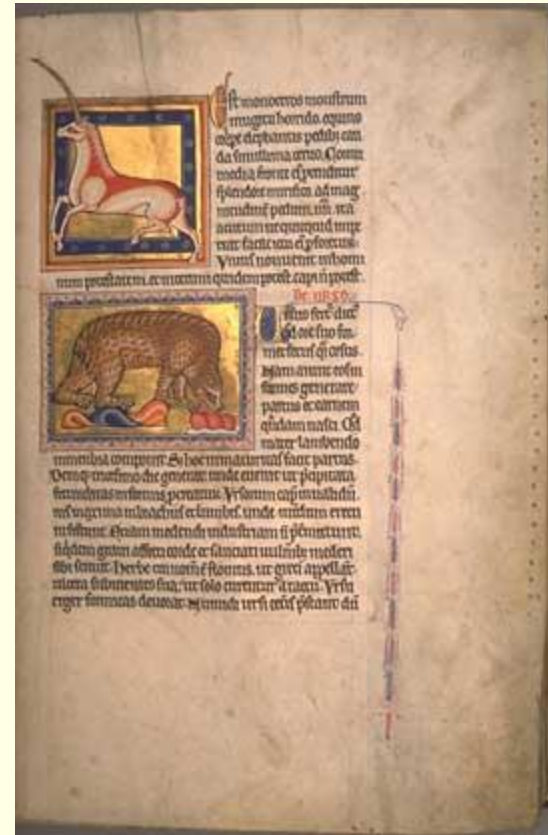 Est monoceros monstrum
mugitu horrido, equino
corpe elephantis pedib; cau
da simillima ceruo. Cornu
media fronte
splendore mirifico. ad mag
nitudinē pedum. iiii. ita
acutum ut quicquid impe
tat facile ictu
Viuus non uenit in homi
num potestatem. et interimi quidem potest. capi ñ potest.
De urso.
Vrsus fert' dict'
qd ore suo for
met fetus qͥ orsus.
Nam aiunt eos in
formes generare
partus et carnem
quādam nasci. Qd
mater lambendo
membra componit. Sȝ hoc inmaturitas facit partus.
Deniqȝ tricesimo die generat. unde euenit ut p̄cipitata
fecunditas informis procreatur. Vrsorum cap̄ inualidū.
uis maxima in brachiis et lumbis. unde interdum erecti
insistunt. Etiam medendi industriam ñ
siqdem graui affecti cede et sauciati uulnib; mederi
sibi sciunt. Herbe cui nom̄ ē flomis. ut greci appellāt
ulcera subicientes sua, ut solo curentur a tactu. Vrsus
eger formicas deuorat. Numidi ursi ceteris p̄stant dū